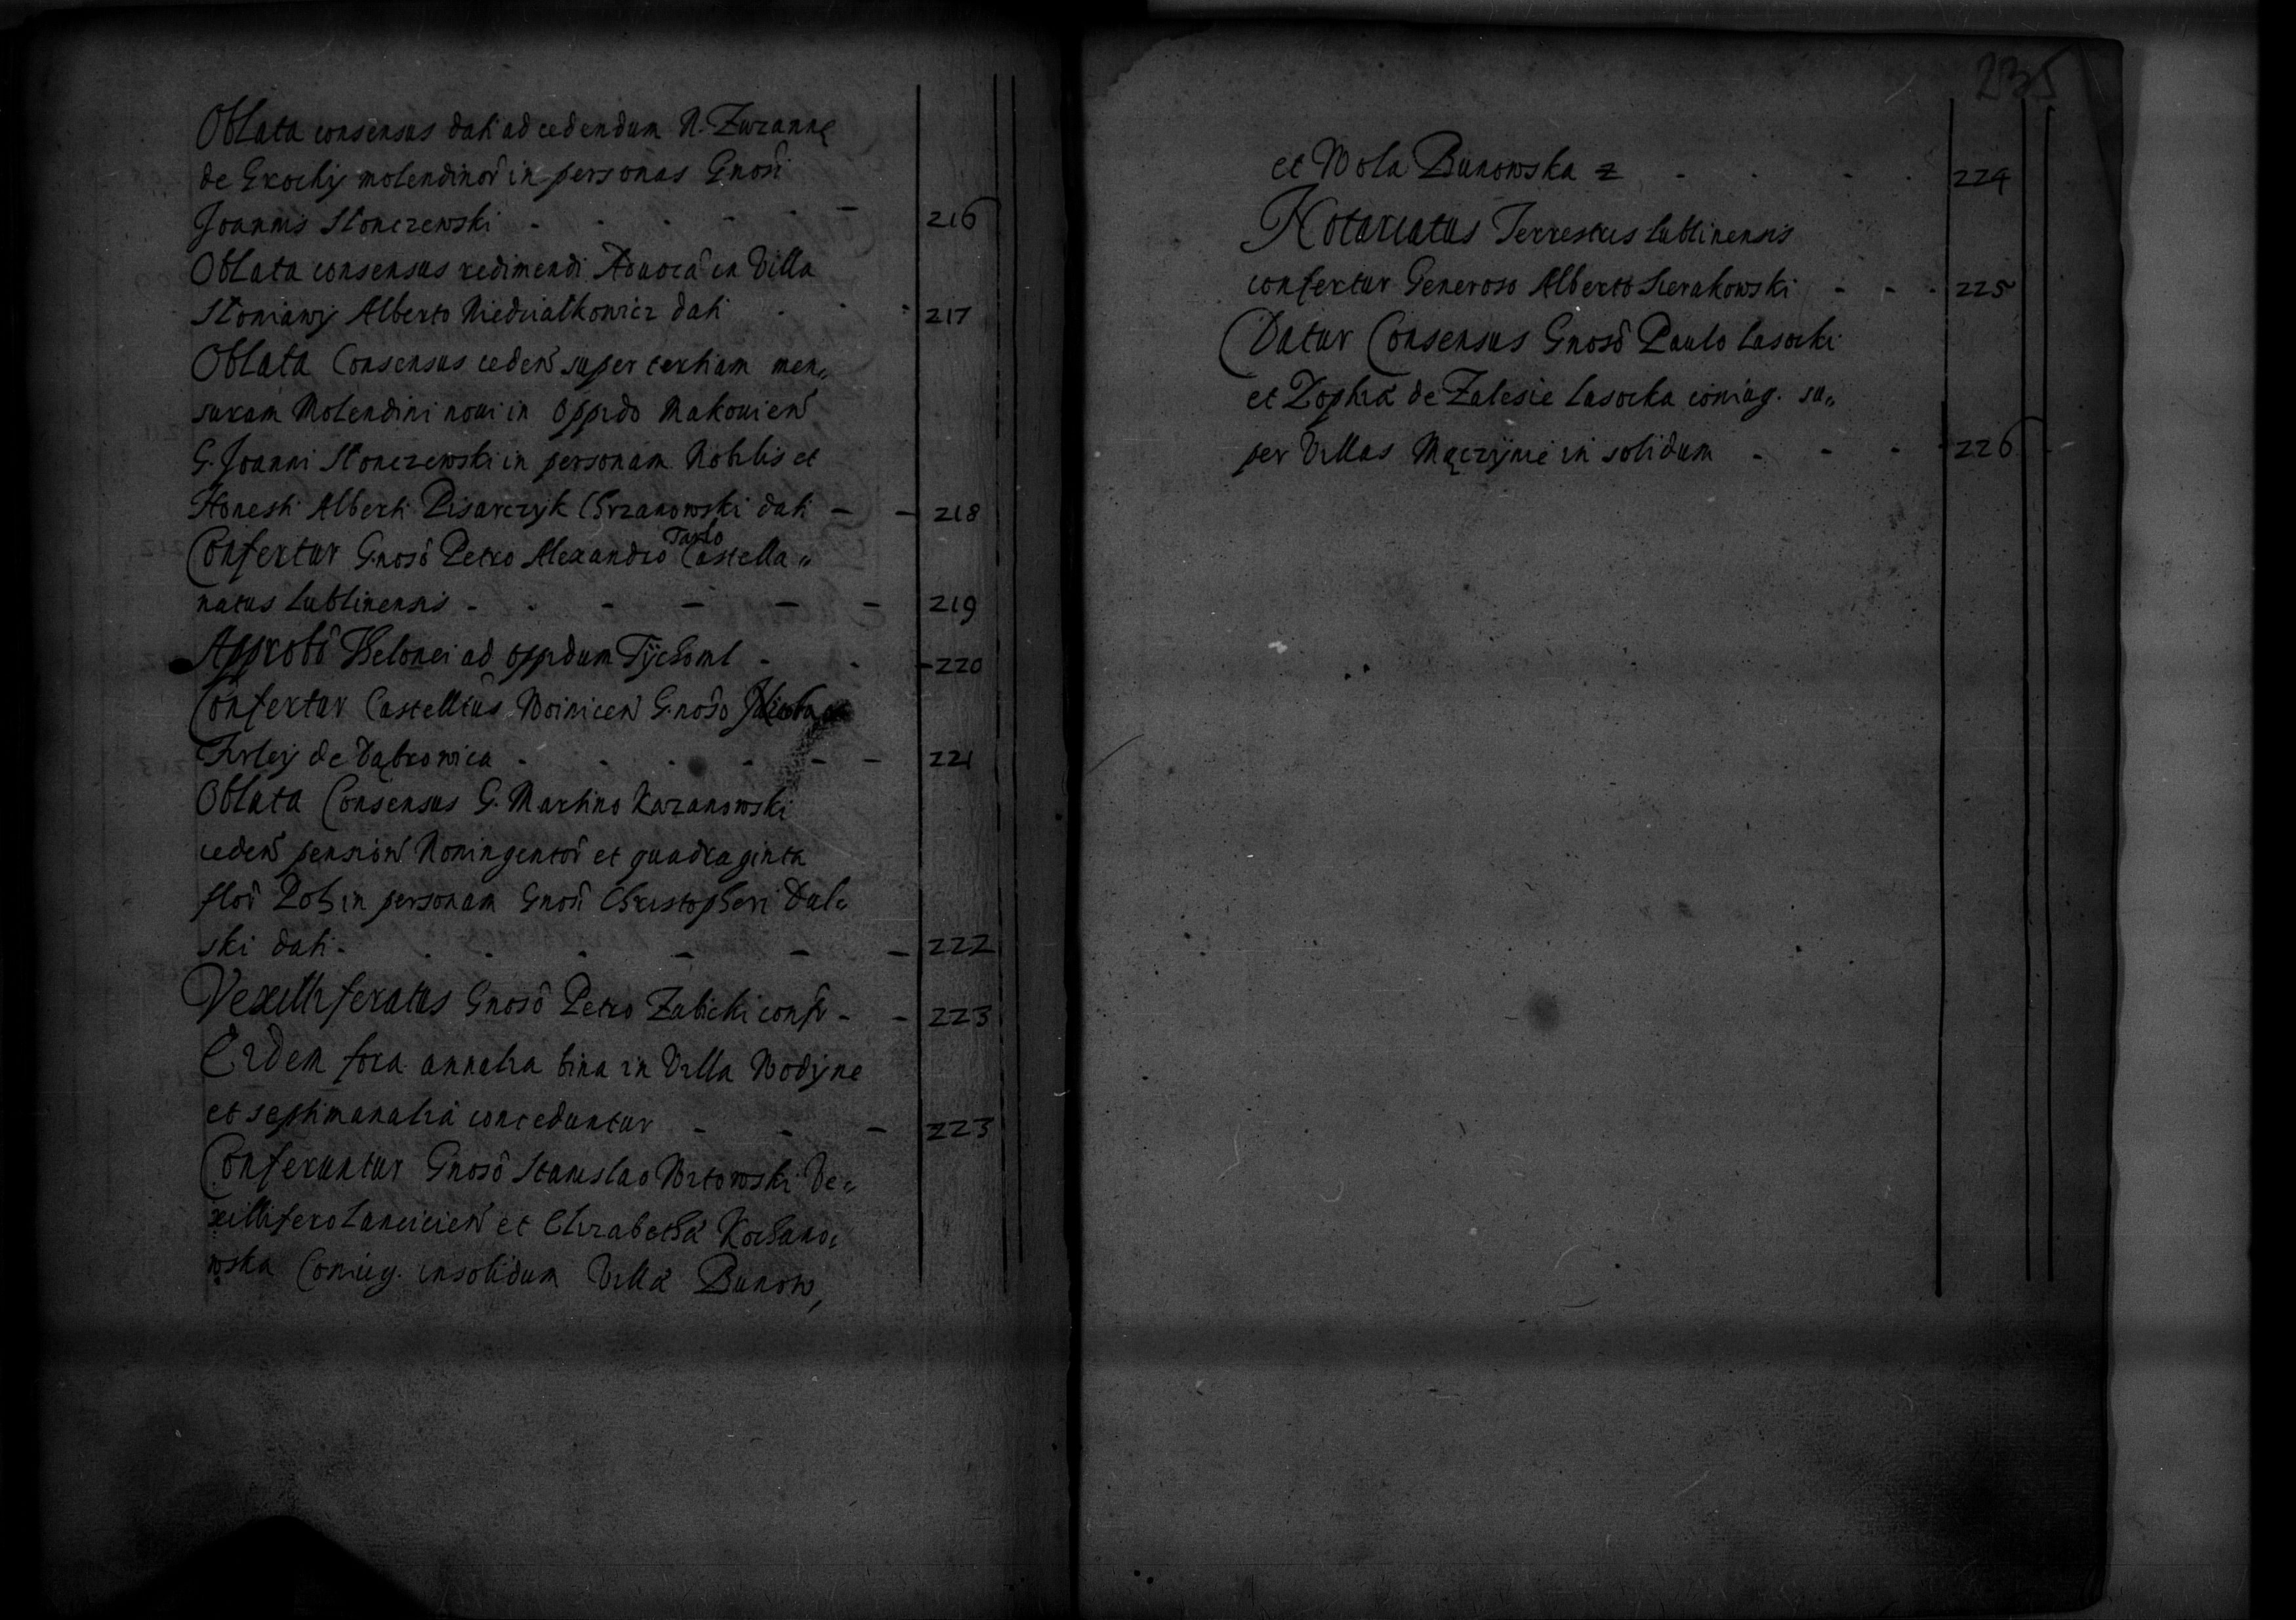 Oblata consensus dati ad cedendum N. Zuzannę
de Grochy molendinoŕ in personas Gnosi
Joannis Słonczewski - - - - - 216
Oblata consensus redimendi Aduocã in Villa
Słomiawy Alberto Niedziałkowicz dati - - 217
Oblata Consensus cedeń super tertiam men„
suram Molendini noui in Oppido Makouień
G. Joanni Słonczewski in personam Nobilis et
Honesti Alberti Pisarczyk Chrzanowski dati - - 218
Confertur Gnosô Petro Alexandro Tarło Castella„
natus Lublinensis - - - - - 219
Approbô Thelonei ad oppidum Tÿchoml - - 220
Confertur Castelltûs Woiniceń Gnoso
Firleÿ de Dąbrowica - - - - - 221
Oblata Consensus G. Martino Kazanowski
cedeń pensioń Noningentoŕ et quadraginta
floŕ Pol in personam Gnosi Christopheri Dul„
ski dati - - - - - 222
Vexilliferatus Gnosô Petro Zabicki confr - - 223
Eidem fora annalia bina in Villa Wodÿne
et septimanalia conceduntur - - - 223
Conferuntur Gnosô Stanislao Witowski Ve„
xillifero Lancicień et Elizabethã Kochano„
wska Coniug. insolidum Villã Bunow,
235
et Wola Bunowska z - - - - 224
Notariatus Terrestris Lublinensis
confertur Generoso Alberto Sierakowski - - - 225
Datur Consensus Gnosô Paulo Lasocki
et Zophiã de Zalesie Lasocka coniug. su„
per Villas Mączÿnie in solidum - - - 226